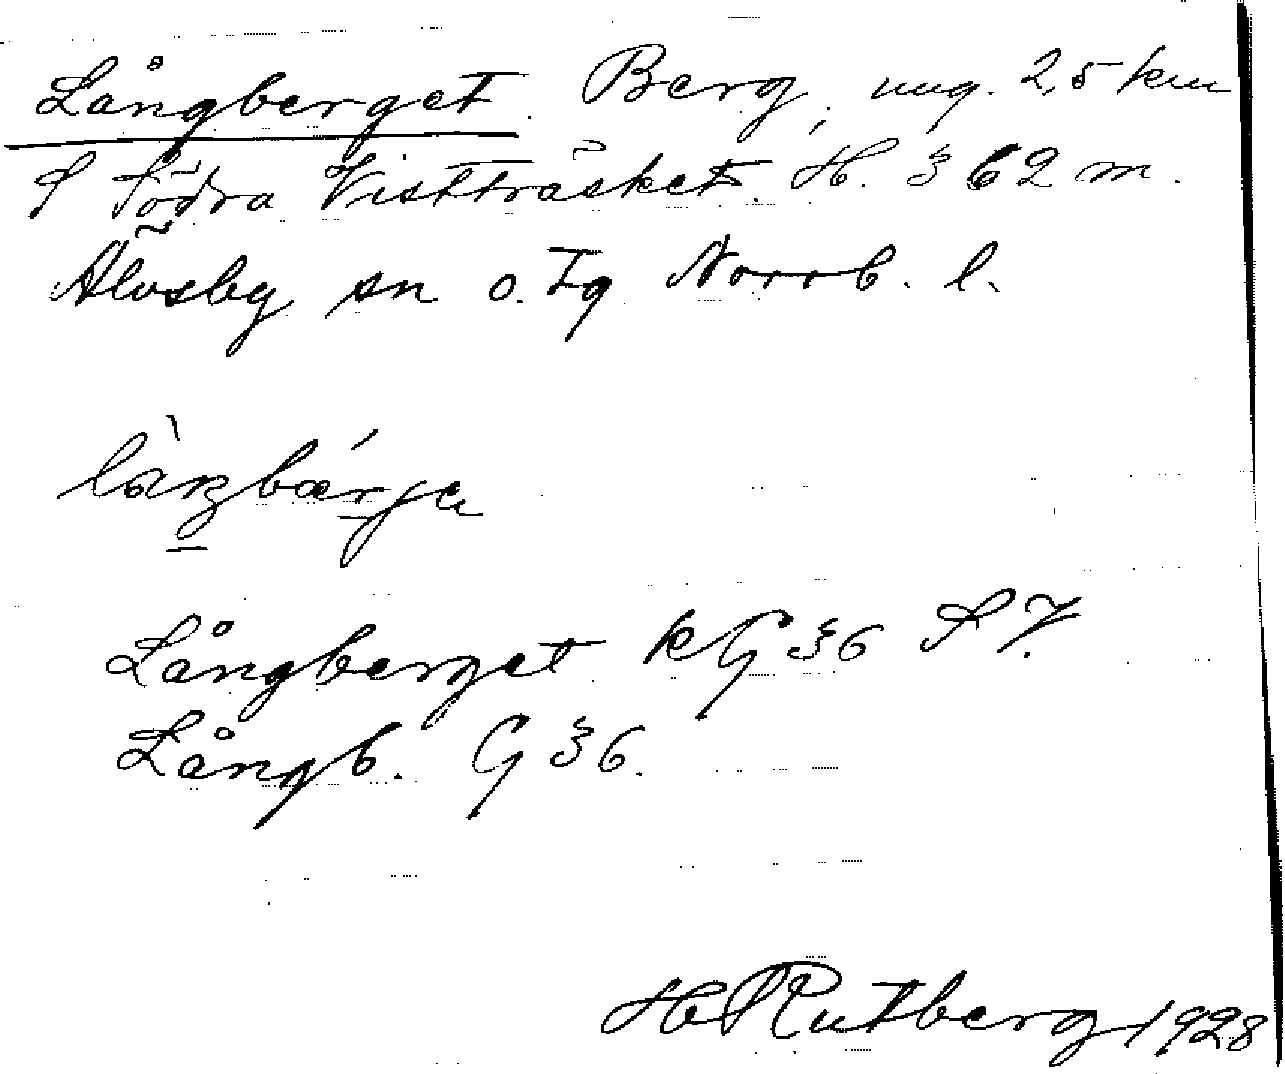 Långberget. Berg, ung. 2,5 km
S Södra Vistträsket. H. 362 m.
Älvsby sn o. Tg Norrb. l.
làŋbǽrjɐ
Långberget kG 36 S7.
Långb. G 36.
H Rutberg 1928